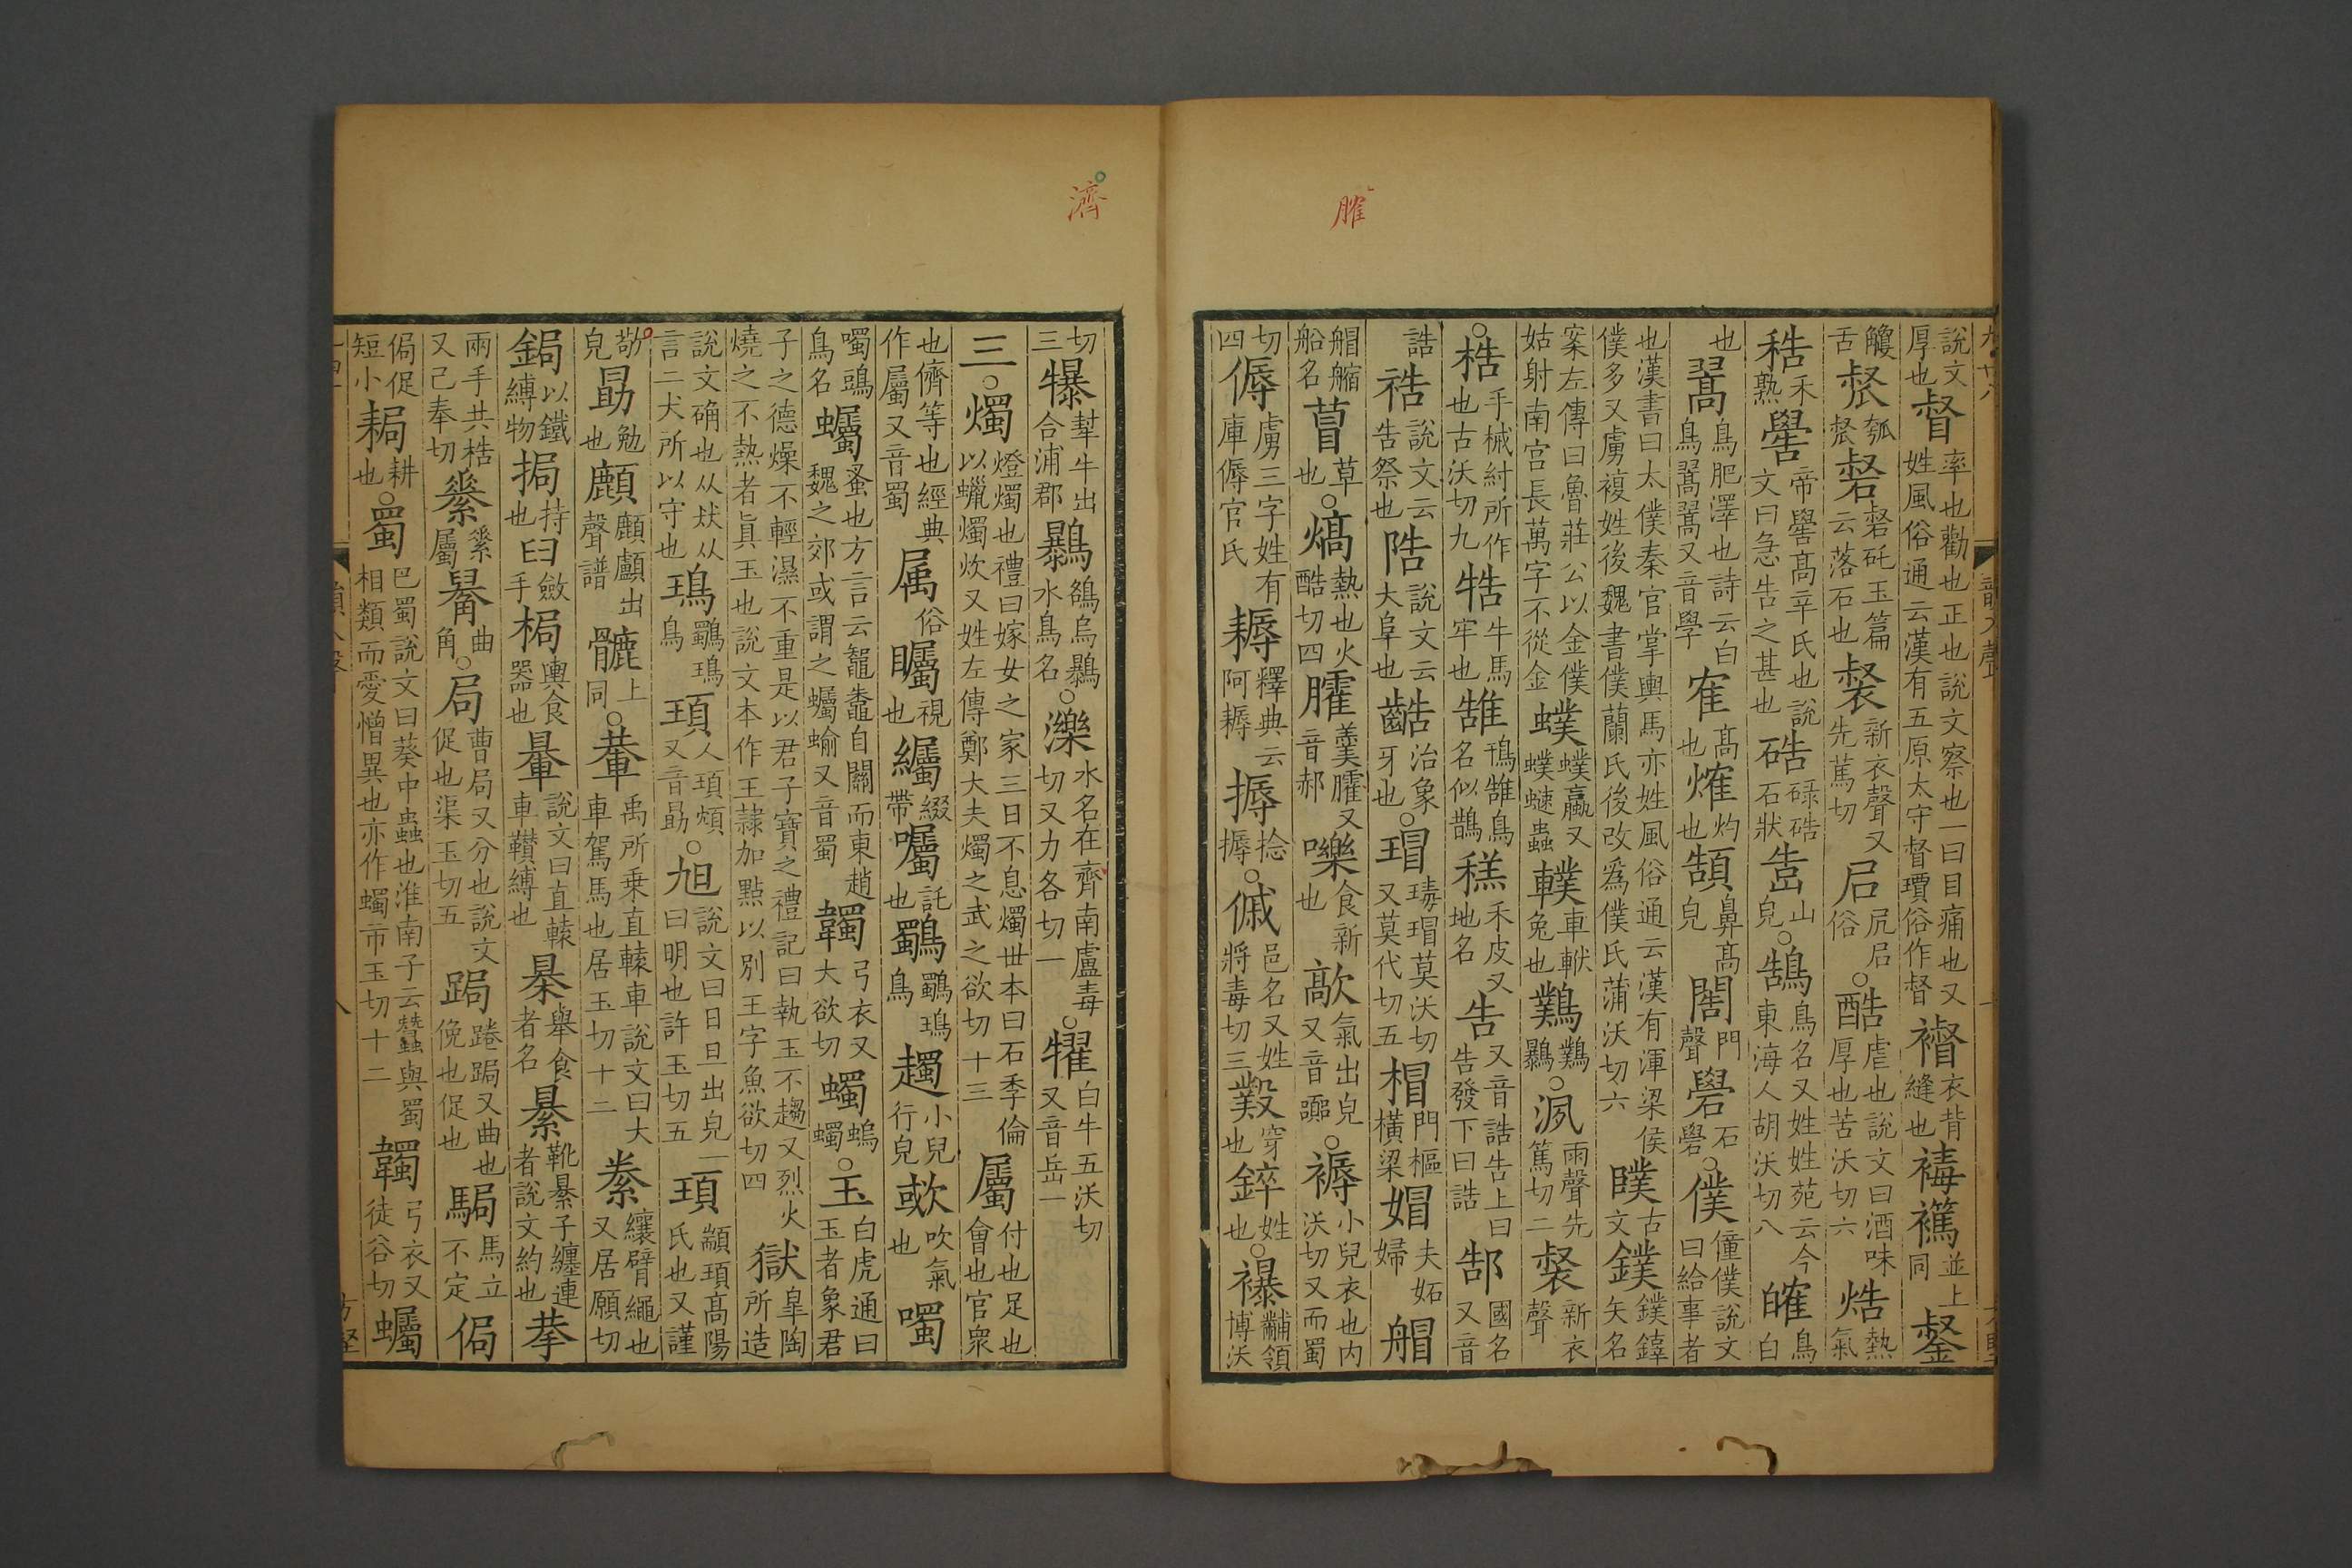 膗
說文厚也督率也勸也正也說文察也一曰目痛也又姓風俗通云漢有五原太守督瓚俗作督䙱衣背縫也襡並上同鋈
觼舌裻裻新衣聲又先篤切尻尻俗○酷虐也說文曰酒味厚也苦沃切六焅熱氣
秸禾熟嚳帝嚳高辛氏也說文曰急告之甚也硞碌硞石狀嵪山皃○鵠鳥名又姓姓苑云今東海人胡沃切八㿥鳥白
也翯鳥肥澤也詩云白鳥翯翯又音學隺高也熇灼也䫞鼻高皃閣門聲礐石礐○僕僮僕說文曰給事者
也漢書曰太僕秦官掌輿馬亦姓風俗通云漢有渾梁侯僕多又虜複姓後魏書僕蘭氏後改爲僕氏蒲沃切六瞨古文鏷鏷鐪矢名
案左傳曰魯莊公以金僕姑射南宫長萬字不從金蟔蟔蠃又蟔螰蟲轐車軾兔也鸔鸔鸔○洬雨聲先篤切二裻新衣聲
○梏手械紂所作也古沃切九牿牛馬牢也鵠鳱鵠鳥名似鵲䅵禾皮又地名告又音誥告上曰告發下曰誥郜國名又音
誥祰說文云告祭也陪說文云大阜也䶜治象牙也○瑁瑇瑁莫沃切又莫代切五楣門樞橫梁媢夫妬婦艒
艒䑿船名萺草也○熇熱也火酷切四臛羹臛又音郝嚛食新也歊氣出皃又音囂○褥小兒衣也內沃切又而蜀
切四傉虜三字姓有庫傉官氏耨釋典云阿耨搙捻搙○傶邑名又姓將毒切三鑿穿也錊姓也○襮黼領博沃
濟
切三犦犎牛出合浦郡鸔鵅烏鸔水鳥名○濼水名在齊南盧毒切又力各切一㸌白牛五沃切又音岳一
三○燭燈燭也禮曰嫁女之家三日不息燭世本曰石季倫以蠟燭炊又姓左傳鄭大夫燭之武之欲切十三屬付也足也會也官衆
也儕等也經典作屬又音蜀属俗矚視也䌵綴帶囑託也鸀鸀鳿鳥趨小兒行皃歜吹氣也噣
噣鴟鳥名蠾蚤也方言云鼅鼄自關而東趙魏之郊或謂之蠾蝓又音蜀韣弓衣又大欲切蠋螐蠋○玉白虎通曰玉者象君
子之德燥不輕濕不重是以君子寶之禮記曰執玉不趨又烈火燒之不熱者眞玉也說文本作王隷加點以別王字魚欲切四獄皐陶所造
說文确也从㹜从言二犬所以守也鳿鸀鳿鳥頊人項頊又音勗○旭說文曰日旦出皃一曰明也許玉切五頊顓頊高陽氏也又謹
敬皃勗勉也顱顱出聲譜髗上同○輂禹所乗直轅車說文曰大車駕馬也居玉切十二絭纕臂繩也又居願切
鋦以鐵縛物挶持也臼斂手梮輿食器也暈說文曰直轅車䩭縛也暴舉食者名綦靴綦子纏連者說文約也拲
兩手共梏又己奉切絫絫屬䂓曲角○局曹局又分也說文促也渠玉切五跼踡跼又曲也俛也促也駶馬立不定侷
侷促短小耟耕也○蜀巴蜀說文曰葵中蟲也淮南子云蠶與蜀相類而愛憎異也亦作蠋市玉切十二韣弓衣又徒谷切蠾